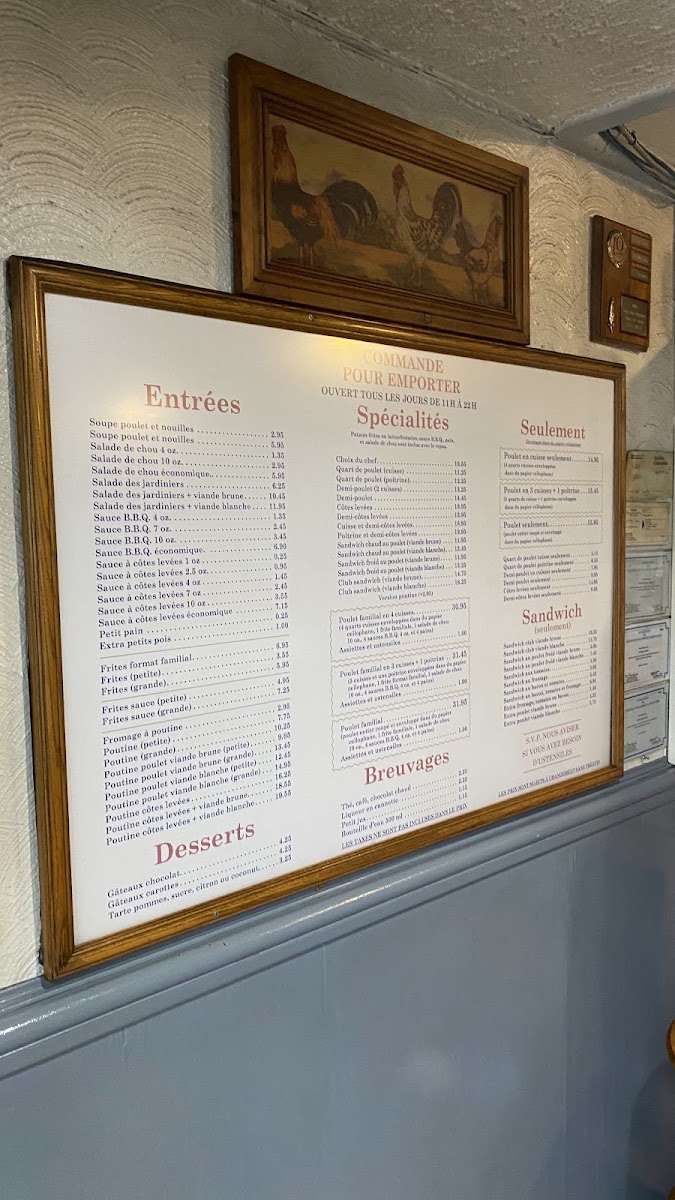 Entrées
Soupe poulet et nouilles 2.95
Soupe poulet et nouilles 5.95
Salade de chou 4 oz. 1.35
Salade de chou 10 oz. 2.95
Salade de chou économique 5.95
Salade des jardiniers 6.25
Salade des jardiniers + viande brune 10.45
Salade des jardiniers + viande blanche 11.95
Sauce B.B.Q. 4 oz. 1.35
Sauce B.B.Q. 7 oz. 2.45
Sauce B.B.Q. 10 oz. 3.45
Sauce B.B.Q. économique. 6.90
Sauce à côtes levées 1 oz 0.25
Sauce à côtes levées 2.5 oz. 0.95
Sauce à côtes levées 4 oz 1.45
Sauce à côtes levées 7 oz 2.45
Sauce à côtes levées 10 oz 3.55
Sauce à côtes levées économique 7.15
Petit pain 0.25
Extra petits pois 1.00
Frites format familial. 6.95
Frites (petite) 3.55
Frites (grande) 5.95
Frites sauce (petite) 4.95
Frites sauce (grande) 7.25
Fromage à poutine 2.95
Poutine (petite) 7.75
Poutine (grande) 10.25
Poutine poulet viande brune (petite) 9.95
Poutine poulet viande brune (grande) 13.45
Poutine poulet viande blanche (petite) 12.45
Poutine poulet viande blanche (grande) 14.95
Poutine côtes levées 16.25
Poutine côtes levées + viande brune. 18.55
Poutine côtes levées + viande blanche 19.55
Desserts
Gâteaux chocolat 4.25
Gâteaux carottes 4.25
Tarte pommes, sucre, citron ou coconut 3.25
COMMANDE
POUR EMPORTER
OUVERT TOUS LES JOURS DE 11H À 22H
Spécialités
et salade de chou sont inclus avec le repas.
Choix du chef
Quart de poulet (cuisse)
Quart de poulet (poitrine)
Demi-poulet (2 cuisses)
Demi-poulet
Côtes levées
Demi-côtes levées
Cuisse et demi-côtes levées
Poitrine et demi-côtes levées
Sandwich chaud au poulet (viande brune)
Sandwich chaud au poulet (viande blanche)
Sandwich froid au poulet (viande brune)
Sandwich froid au poulet (viande blanche)
Club sandwich (viande brune)
Club sandwich (viande blanche)
Version poutine (+2.95)
Poulet familial en 4 cuisses 30.95
(4 quarts cuisses enveloppées dans du papier
cellophane, 1 frite familiale, 1 salade de chou
10 oz., 4 sauces B.B.Q. 4 oz. et 4 pains)
Assiettes et ustensiles 1.00
Poulet familial en 3 cuisses + 1 poitrine 31.45
(3 cuisses et une poitrine enveloppées dans du papier
cellophane, 1 frite format familial, 1 salade de chou
10 oz., 4 sauces B.B.Q. 4 oz. et 4 pains)
Assiettes et ustensiles 1.00
Poulet familial 31.95
(poulet entier coupé et enveloppé dans du papier
cellophane, 1 frite familial, 1 salade de chou
10 oz., 4 sauces B.B.Q. 4 oz. et 4 pains)
Assiettes et ustensiles 1.00
Breuvages
Thé, café, chocolat chaud
Liqueur en cannette
Petit jus
Bouteille d'eau 500 ml
LES TAXES NE SONT PAS INCLUSES DANS LE PRIX
Seulement
Poulet en cuisse seulement 14.95
(4 quarts cuisses enveloppées
dans du papier cellophane)
Poulet en 3 cuisses + 1 poitrine 15.45
dans du papier cellophane)
Poulet seulement 15.95
(poulet entier coupé et enveloppé
dans du papier cellophane)
Quart de poulet cuisse seulement
Quart de poulet poitrine seulement
Demi-poulet en cuisses seulement
Demi-poulet seulement
Côtes levées seulement
Demi-côtes levées seulement
Sandwich
(seulement)
Sandwich club viande brune
Sandwich club viande blanche
Sandwich au poulet froid viande brune
Sandwich au poulet froid viande blanche
Sandwich aux tomates
Sandwich au fromage
Sandwich au bacon et tomates
Sandwich au bacon, tomates et fromage
Extra fromage, tomates ou bacon
Extra poulet viande brune
Extra poulet viande blanche
S.V.P. NOUS AVISER
SI VOUS AVEZ BESOIN
D'USTENSILES
LES PRIX SONT SUJETS À CHANGEMENT SANS PRÉAVIS